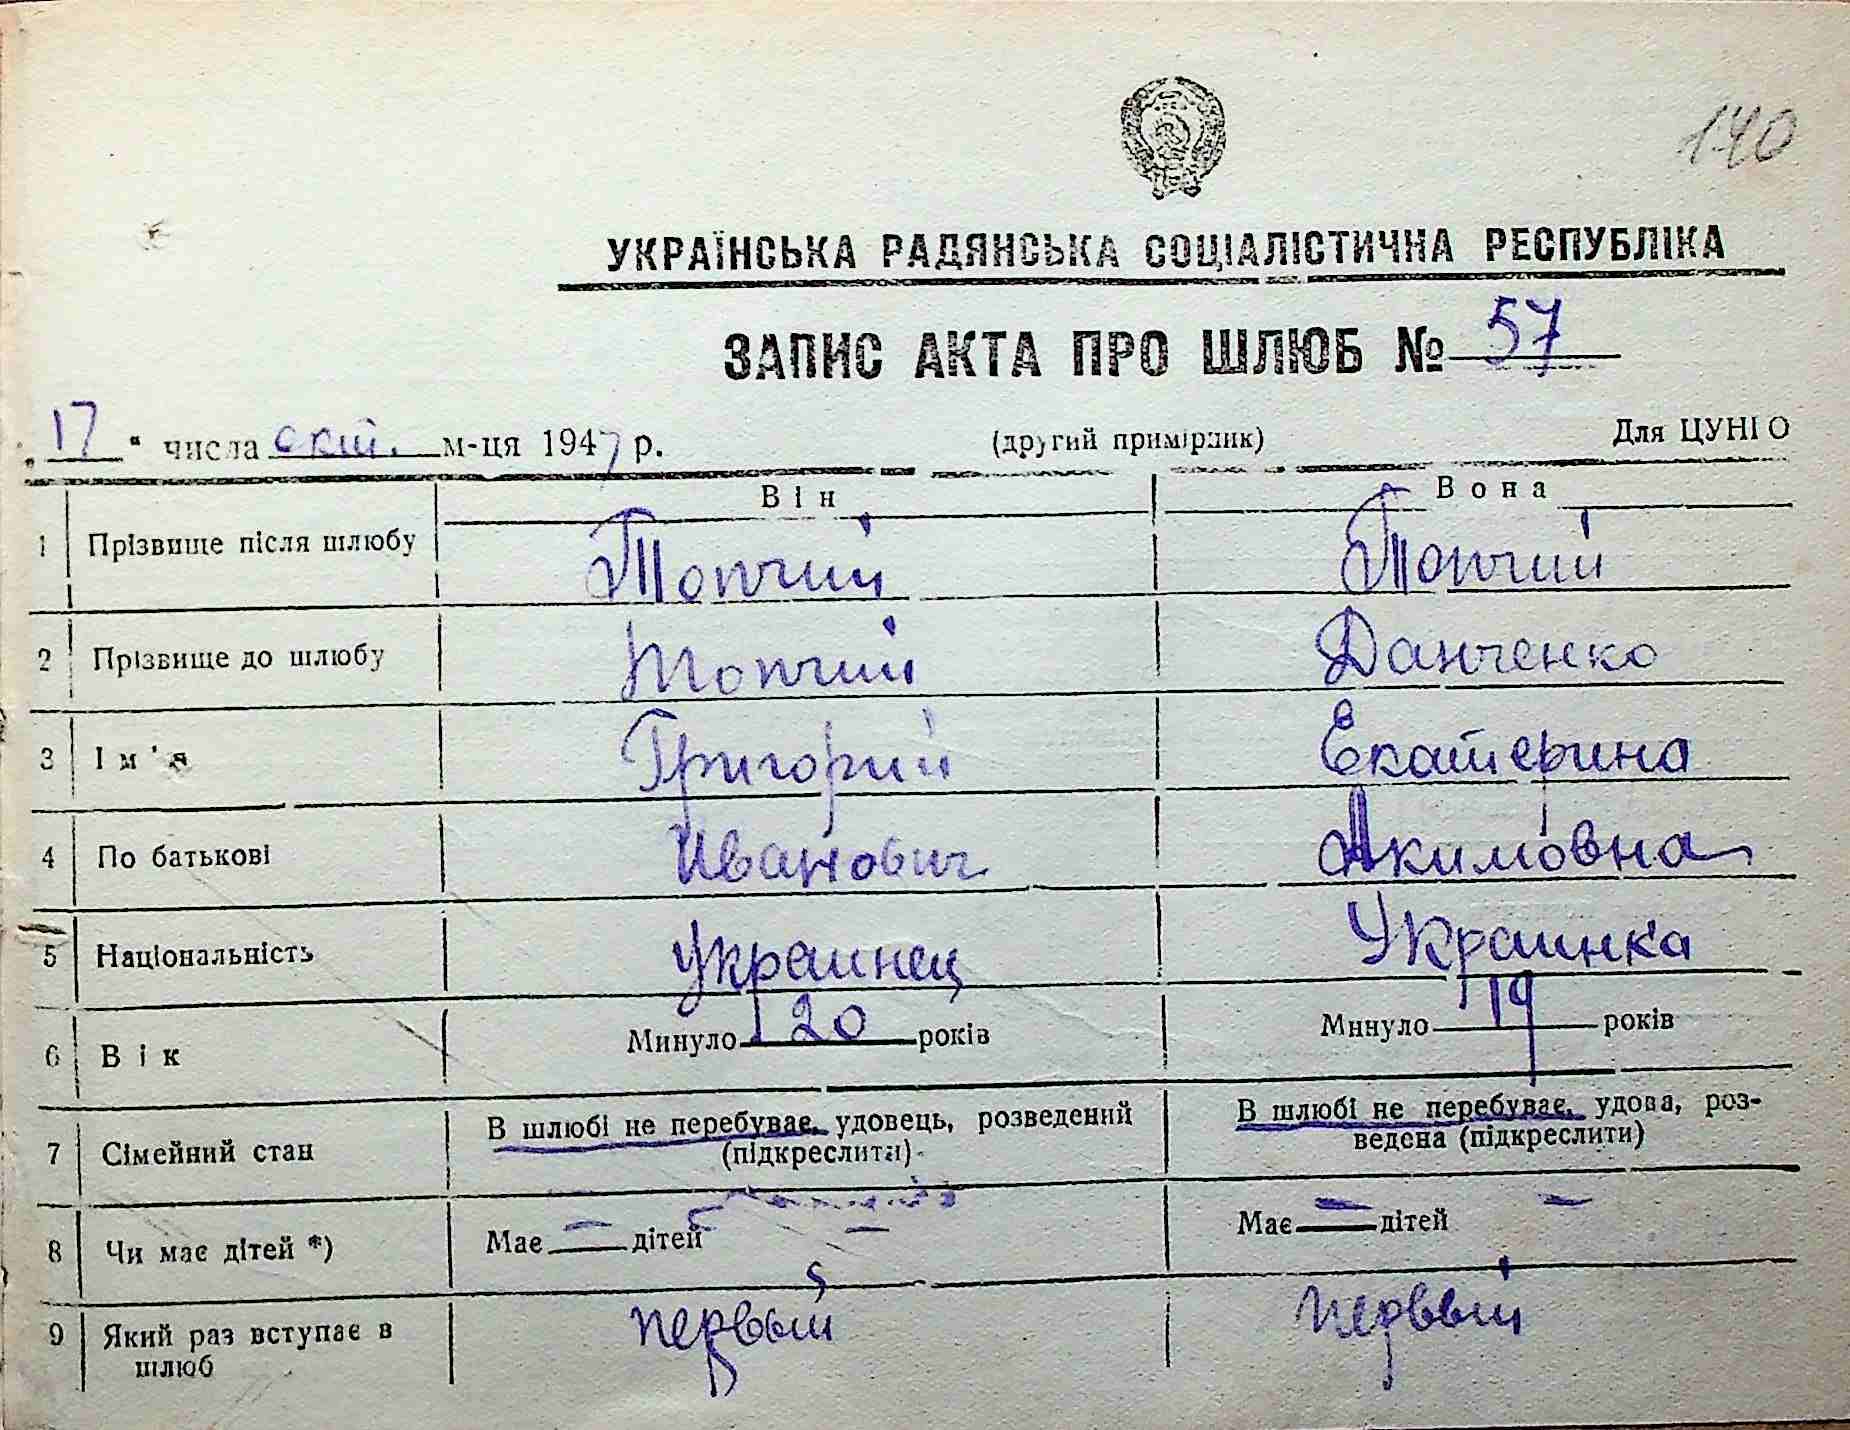 140
УКРАЇНСЬКА РАДЯНСЬКА СОЦІАЛІСТИЧНА РЕСПУБЛІКА
ЗАПИС АКТА ПРО ШЛЮБ № 57
„17“ числа окт. м-ця 1947 р. (другий примірник) Для ЦУНГО
Він Вона
1 Прізвище після шлюбу Топчий Топчий
2 Прізвище до шлюбу Топчий Данченко
3 Ім'я Григорий Екатерина
4 По батькові Иванович Акимовна
5 Національність Украинец Украинка
6 Вік Минуло 20 років Минуло 19 років
7 Сімейний стан В шлюбі не перебуває, удовець, розведений (підкреслити) В шлюбі не перебуває, удова, роз-
ведена (підкреслити)
8 Чи має дітей *) Має — дітей — Має — дітей —
9 Який раз вступає в шлюб первый первый